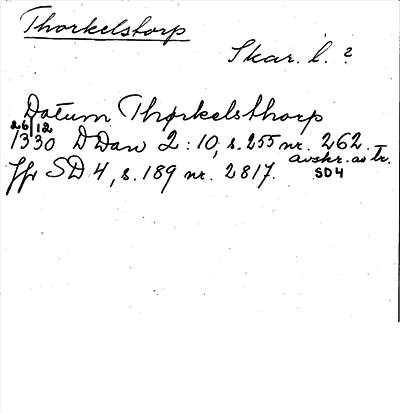 Thorkelstorp
Skar. l. ?
Datum Thorkelsthorp
26/12
1330 DDan 2:10, s. 255 nr. 262.
avskr. av tr.
Jfr SD 4, s. 189 nr. 2817.
SD4